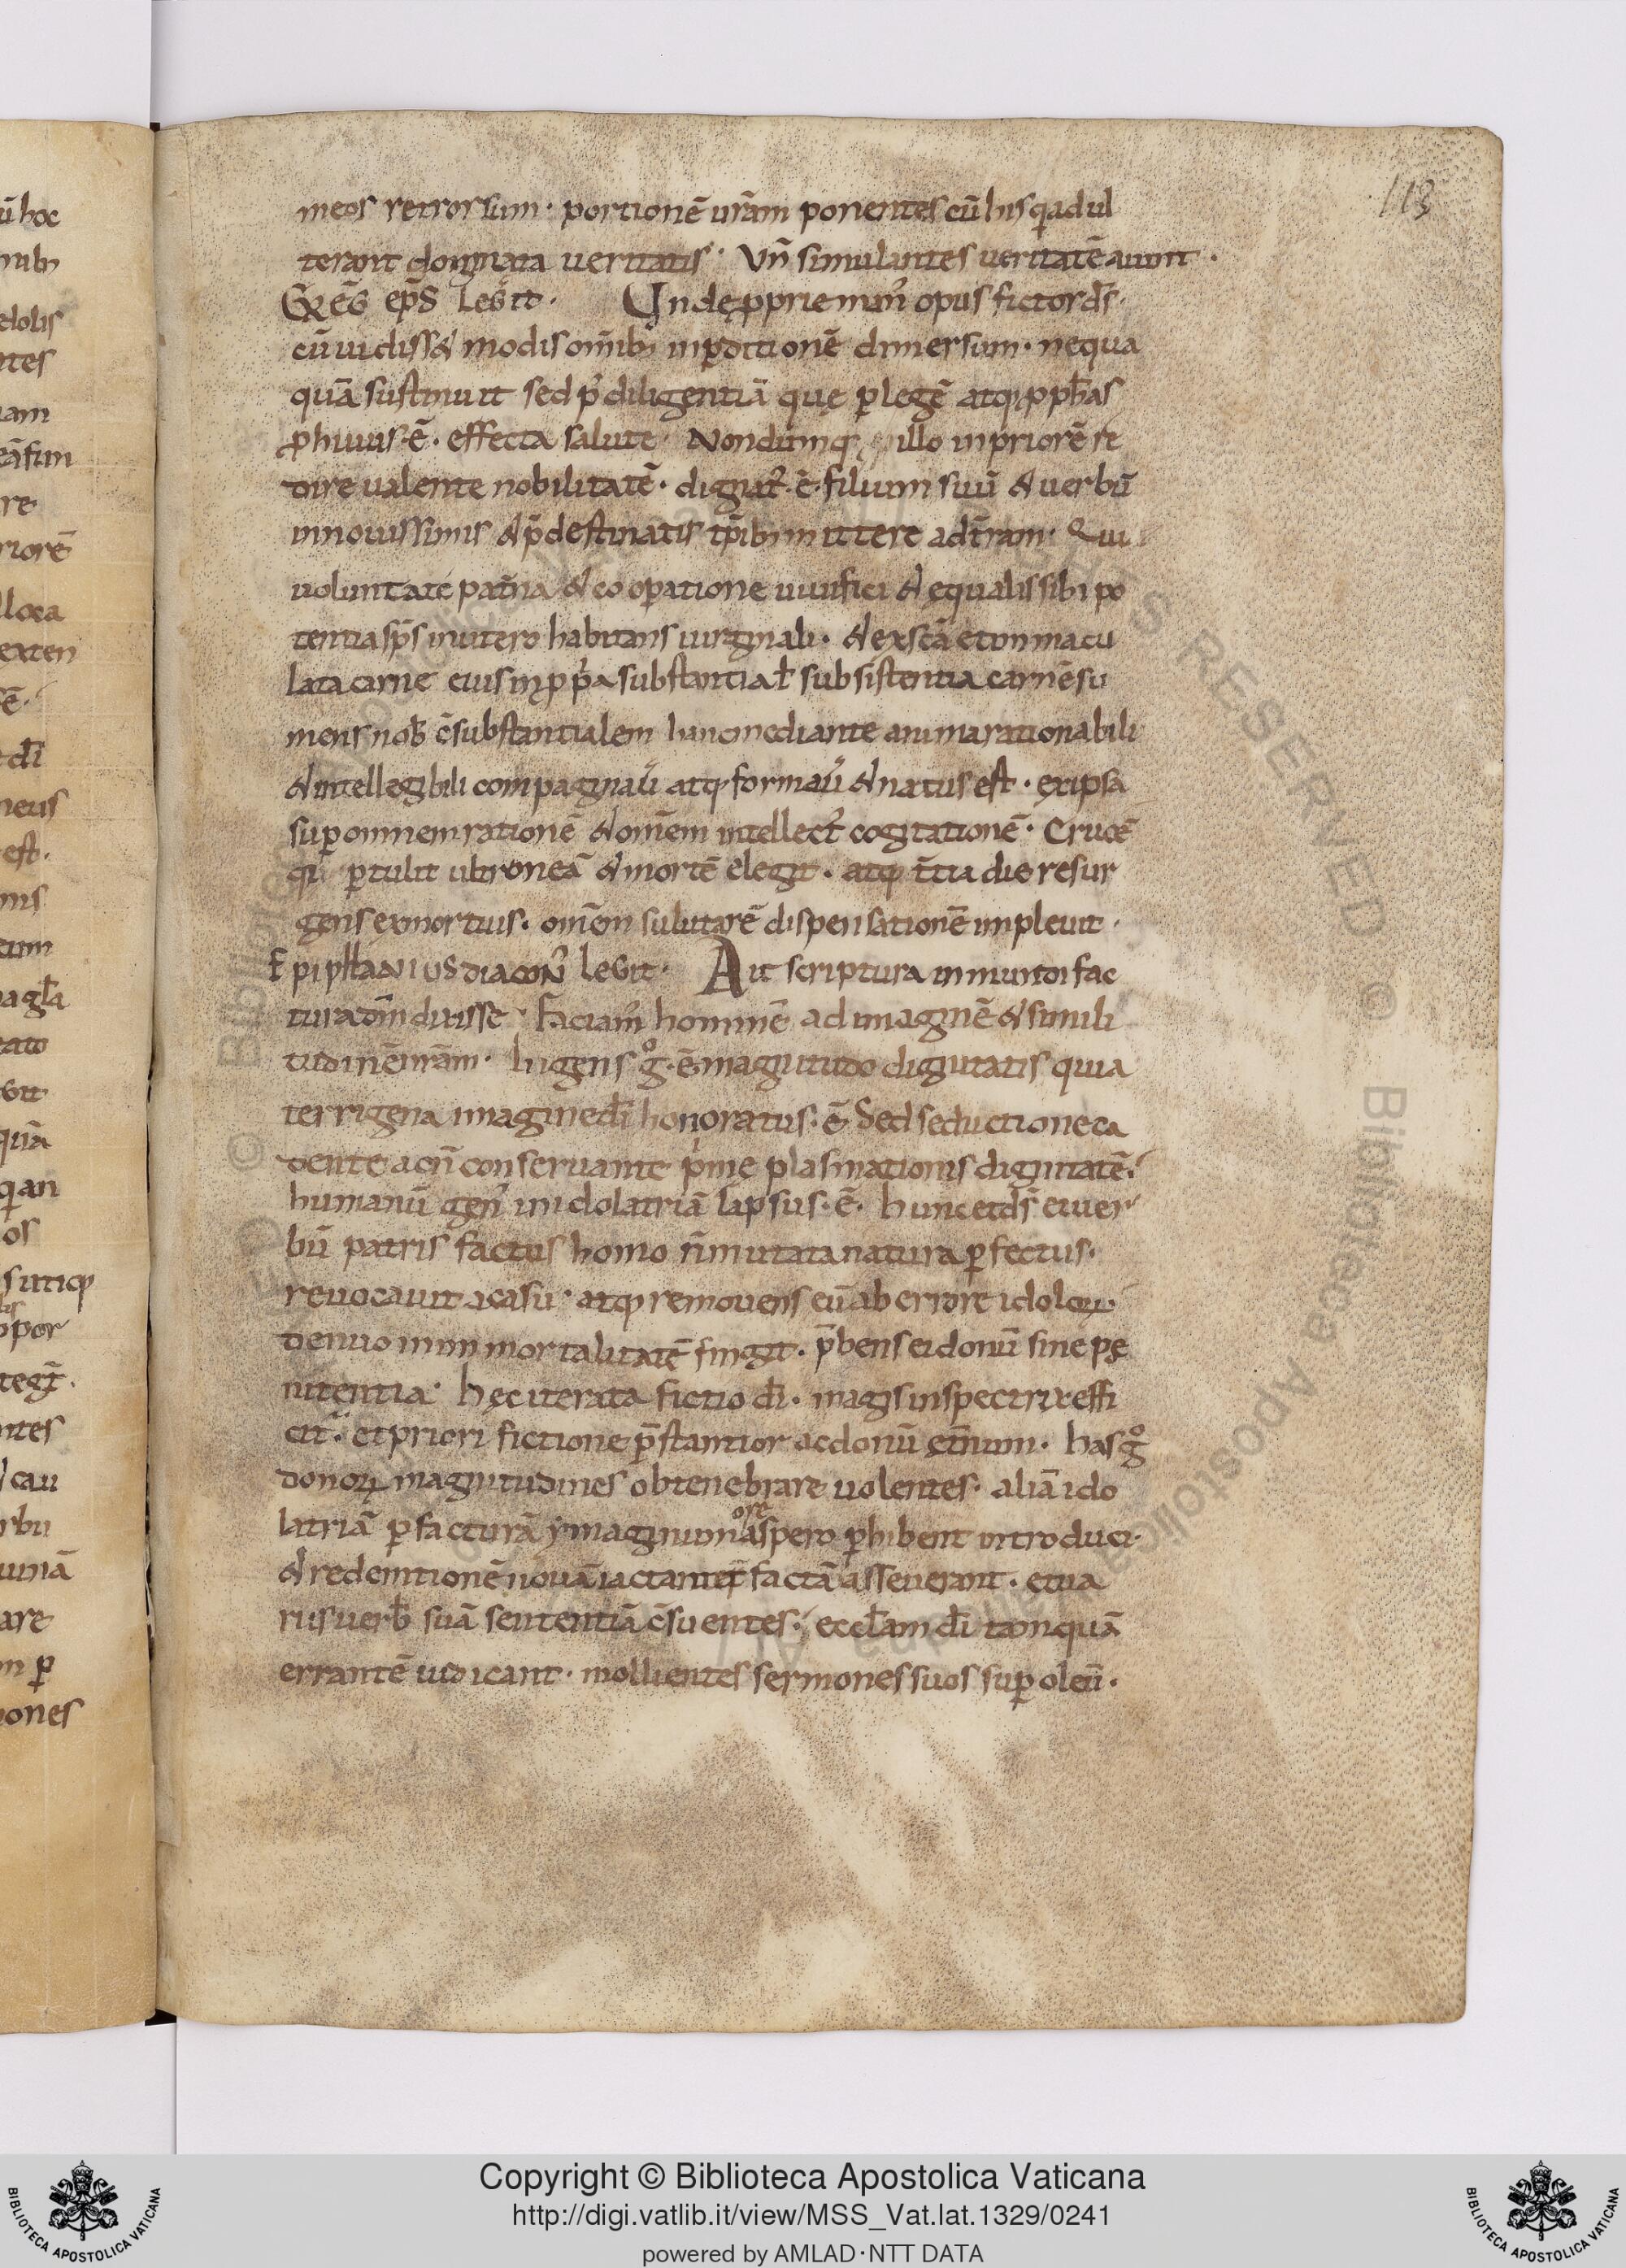 113
meos retrorsum · portionē urām ponentes cū his q adul
terant dogmata veritatis · Vn̄ simulantes veritatē aiunt ·
GREḠ ep̄s legit · Unde ꝓprie man᷒ opus fictor d̄s ·
cū vidiss& modis om̄ib; in ꝑditionē dimersum · nequa
quā sustinuit sed p᷒ diligentiā que ꝑ legē atq; ꝓph̄as
ꝓ huius · ē · effecta salute · Nondumq; illo in priorē re
dire valente nobilitatē · dignat᷒ · ē · filium suū & verbū
in novissimis & p̄destinatis tp̄ib; mittere ad t̄ram · Qui
voluntate pat̄na & cooꝑatione vivifici & equalis sibi po
tentia sp̄s in utero habitans virginali · & ex sc̄a et inmacu
lata carne eius in ꝓp̓a substantia ł subsistentia carnē su
mens nob̄ c̄substantialem hanc mediante anima rationabili
& intellegibili compaginav̄ atq; formav̄ & natus est · ex ipsa
suꝑ omnem rationē & om̄em intellect᷒ cogitationē · Crucē
qi ꝑtulit ultroneā & mortē elegit · atq; t̄tia die resur
gens ex mortuis · om̄em salutarē dispensationē implevit ·
Epiphanius diacon᷒ legit · Ait scriptura in mundi fac
tura dn̄m dixisse · Faciam᷒ hominē ad imaginē & simili
tudinē nrām · Ingens gͦ · ē · magnitudo dignitatis quia
terrigena imagine dī honoratus · ē · Sed seductione ca
dente ac n̄ conservante p̓me plasmationis dignitatē ·
humanū gen᷒ in idolatriā lapsus · ē · hunc et d̄s ei ver
bū patris factus homo n̄ mutata natura ꝑfectus ·
revocavit a casu · atq; removens eū ab errore idoloꝝ
denuo in inmortalitatē fingit · p̄bens ei donū sine pe
nitentia · hec iterata fictio dī · magis inspectrix effi
cit᷒ · et priori fictione p̄stantior ac donū et̄num · has gͦ
donoꝝ magnitudines obtenebrare volentes · aliā ido
latriā ꝑ facturā ymaginum ore aspero ꝑhibent introduci ·
& redemtionē novā iactanter factā asseverant · et va
rus verb̄ suā sententiā c̄suentes · eccl̄am dī tamquā
errantē iudicant · mollientes sermones suos suꝑ oleū ·
Copyright © Biblioteca Apostolica Vaticana
http://digi.vatlib.it/view/MSS_Vat.lat.1329/0241
powered by AMLAD·NTT DATA
BIBLIOTECA APOSTOLICA VATICANA
BIBLIOTECA APOSTOLICA VATICANA